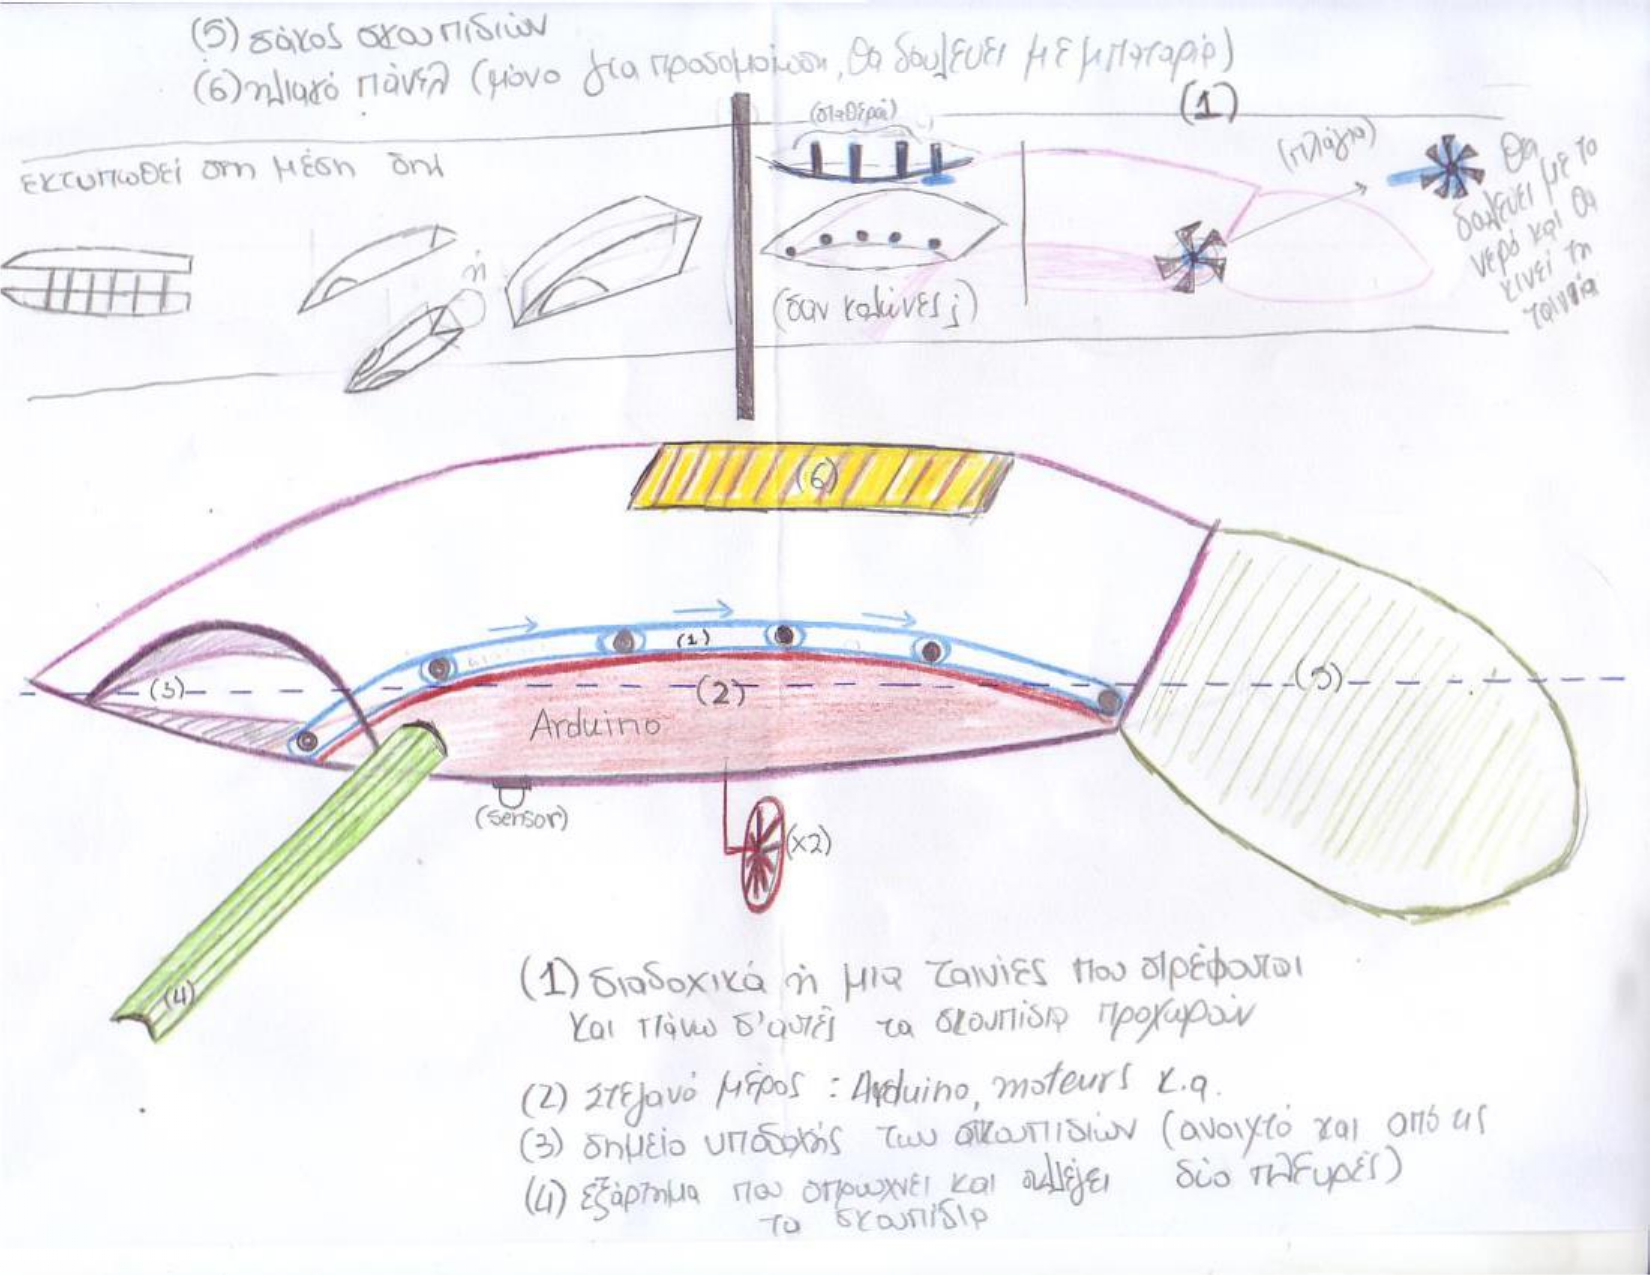 (5) σάκος σκουπιδιών
(6) ηλιακό πάνελ (μόνο για προσομοίωση, θα δουλεύει με μπαταρία)
(1)
(σταθερά)
(πλάγια)
εκτυπωθεί στη μέση
ή
(σαν κυλίνδρες;)
θα
δουλεύει με το
νερό και θα
κινεί τη
ταινία
(6)
(1)
(3)
(2)
(5)
Arduino
(sensor)
(x2)
(4)
(1) διαδοχικά ή μια ταινίες που στρέφονται
και πάνω σ'αυτές τα σκουπίδια προχωρούν
(2) Στεγανό μέρος : Arduino, moteurs κ.α.
(3) σημείο υποδοχής των σκουπιδιών (ανοιχτό και από τις
δύο πλευρές)
(4) εξάρτημα που σπρώχνει και συλλέγει
τα σκουπίδια